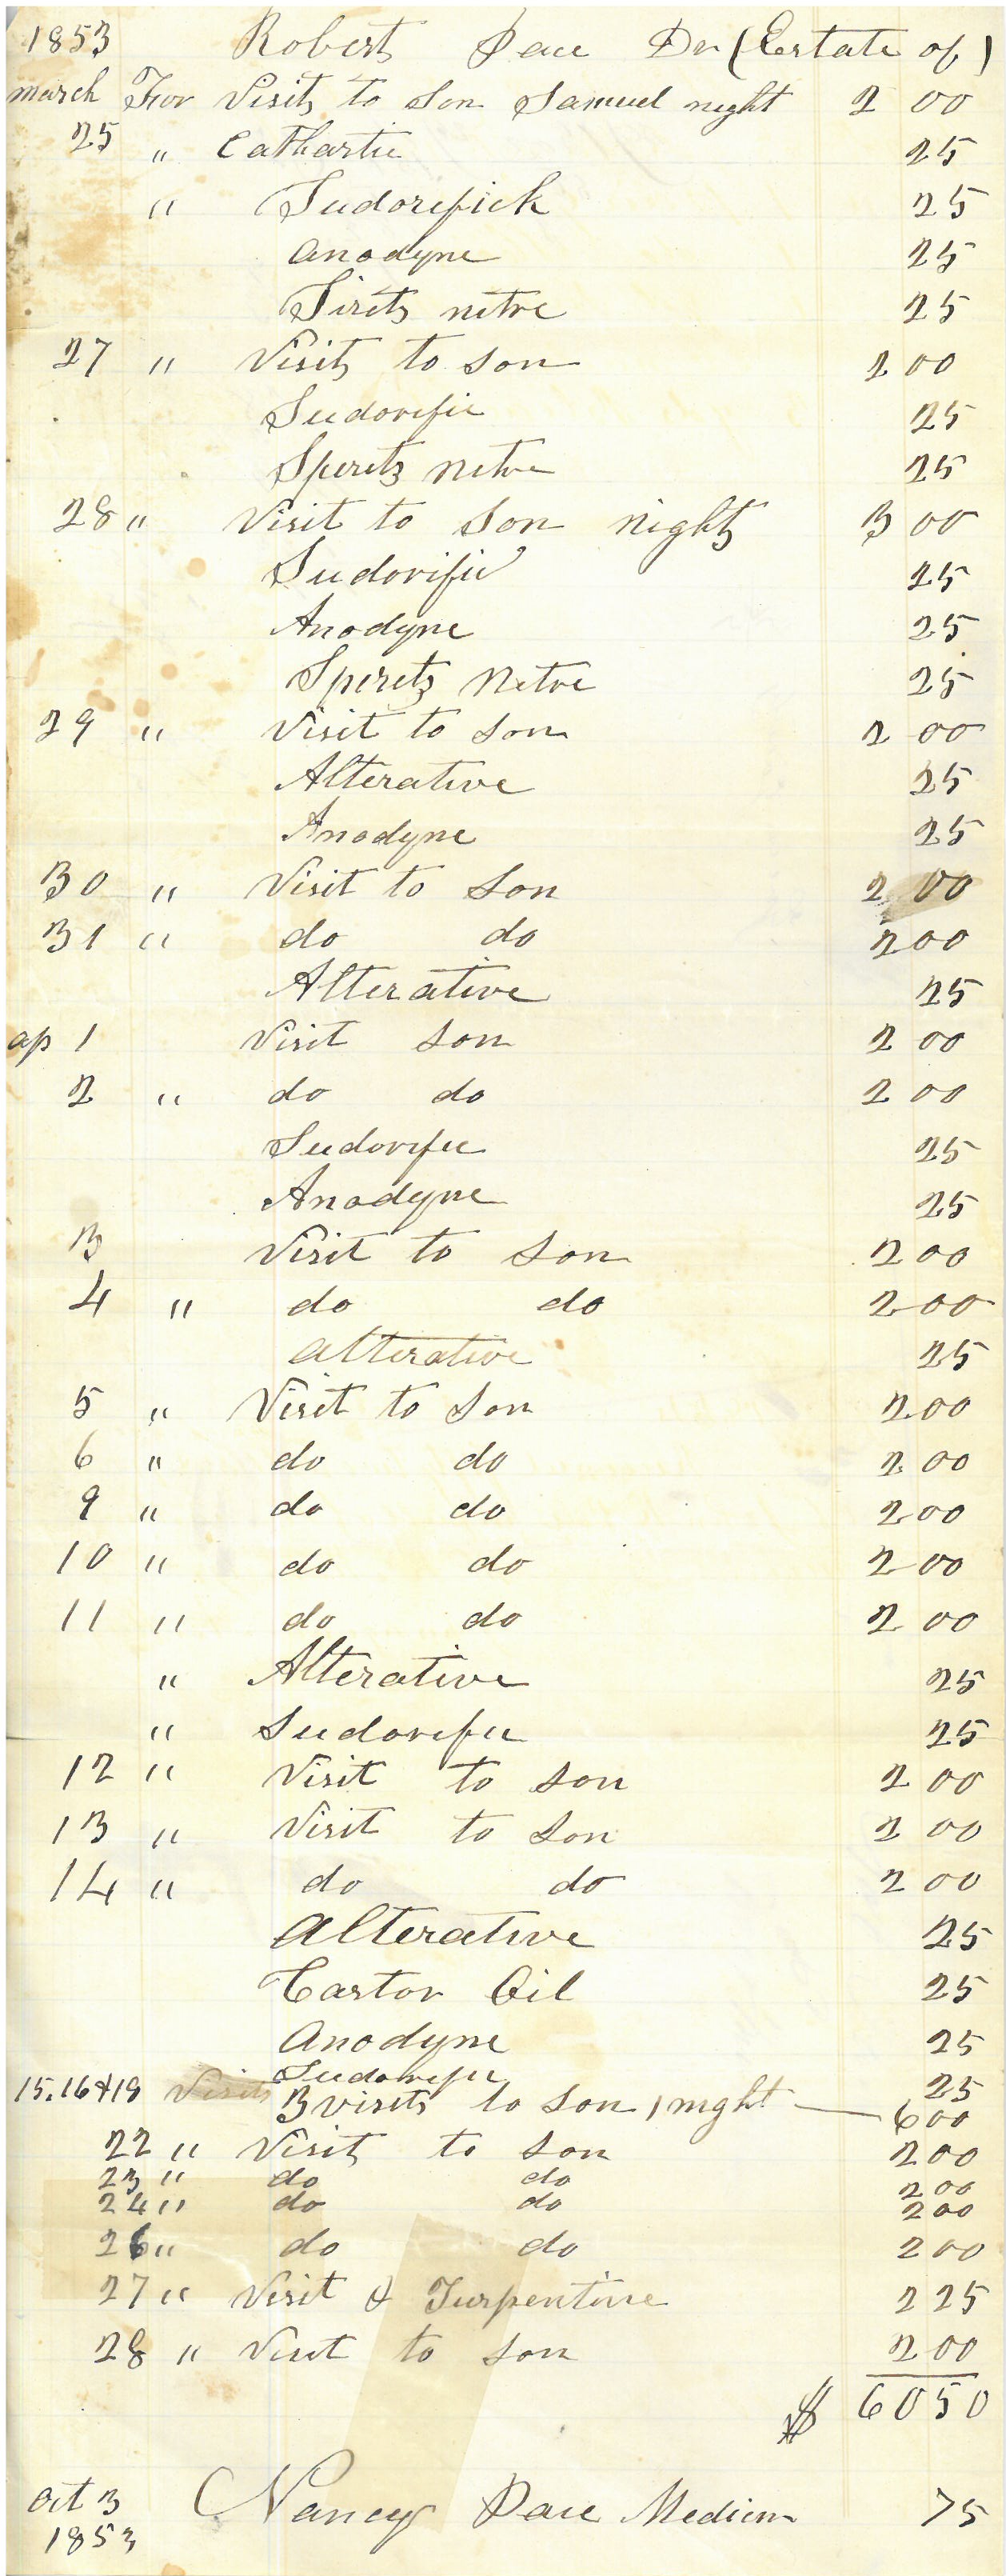 1853 Robert Pace Dr (Estate of)
march For Visit to Son Samuel night 2 00
25 " Cathartic 25
" Sudorefick 25
Anodyne 25
Sirits nitre 25
27 " Visit to son 2 00
Sudorific 25
Sperits Nitre 25
28 " Visit to Son night 3 00
Sudorific 25
Anodyne 25
Sperits Nitre 25
29 " Visit to Son 2 00
Alterative 25
Anodyne 25
30 " Visit to Son 2 00
31 " do do 2 00
Alterative 25
ap 1 Visit Son 2 00
2 " do do 2 00
Sudorific 25
Anodyne 25
3 Visit to Son 2 00
4 " do do 2 00
Alterative 25
5 " Visit to Son 2 00
6 " do do 2 00
9 " do do 2 00
10 " do do 2 00
11 " do do 2 00
" Alterative 25
" Sudorific 25
12 " Visit to son 2 00
13 " Visit to Son 2 00
14 " do do 2 00
Alterative 25
Castor Oil 25
Anodyne 25
Sudorific 25
15.16&19 Visits 3 visits to Son 1 night — 6 00
22 " Visit to Son 2 00
23 " do do 2 00
24 " do do 2 00
26 " do do 2 00
27 " Visit & Turpentine 2 25
28 " Visit to son 2 00
$ 60 50
Oct 3 Nancy Pace Medicin 75
1853